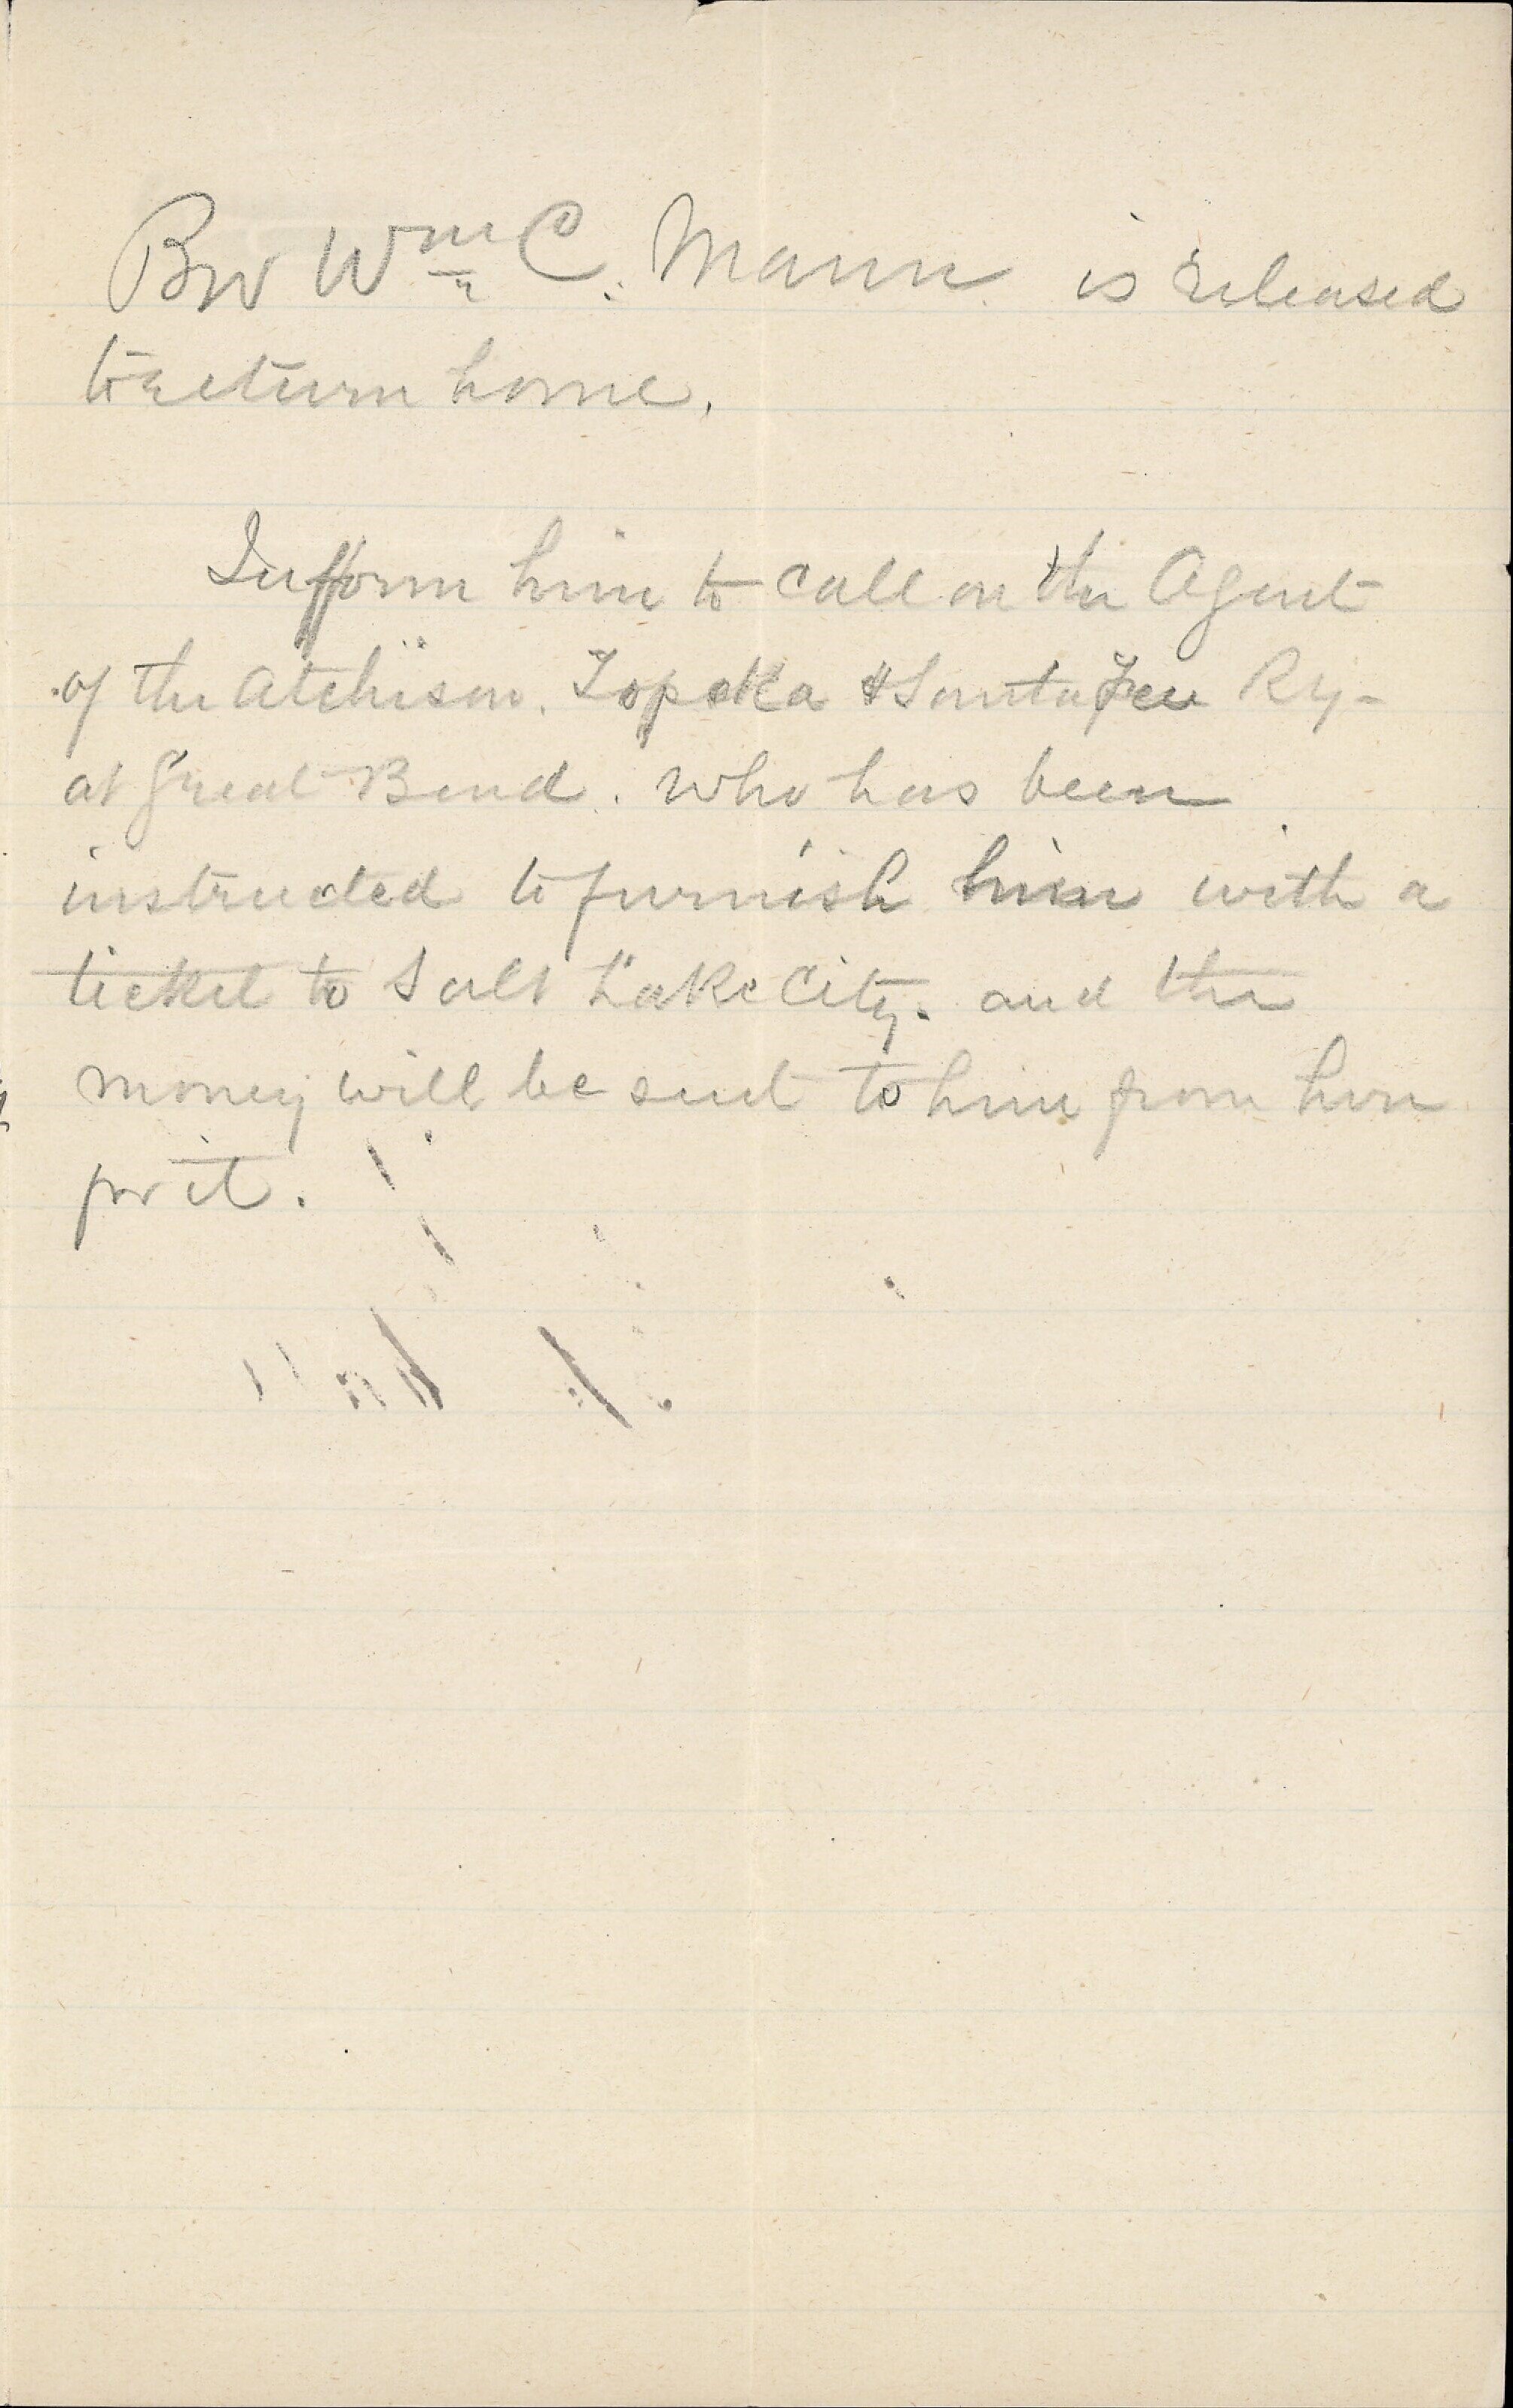 Bro Wm C. Mann is released
to return home.
Inform him to call on the Agent
of the Atchison, Topeka & Santa Fee Ry-
at Great Bend. who has been
instructed to furnish him with a
ticket to Salt Lake City. and the
money will be sent to him from here
for it.